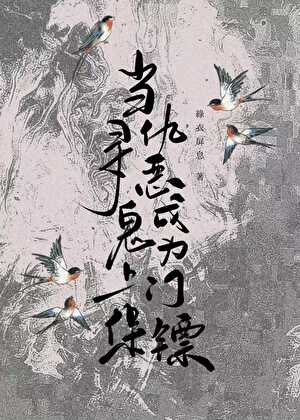 当寻仇恶鬼成为上门保镖
綠衣屏息 著